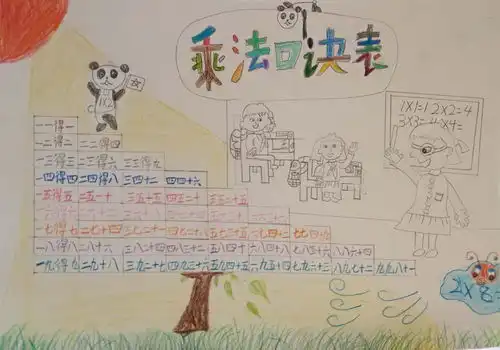 乘法口诀表
1×1=1 2×2=4
3×3= 4×4=
一一得一
一二得二 二二得四
一三得三 二三得六 三三得九
一四得四 二四得八 三四十二 四四十六
一五得五 二五一十 三五十五 四五二十 五五二十五
一七得七 二七十四 三七二十一 四七二十八 五七三十五 六七四十二 七七四十九
一八得八 二八十六 三八二十四 四八三十二 五八四十 六八四十八 七八五十六 八八六十四
一九得九 二九十八 三九二十七 四九三十六 五九四十五 六九五十四 七九六十三 八九七十二 九九八十一
2×8